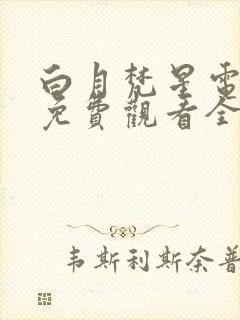 白月梵星電
免費觀看全
韦斯利斯奈普